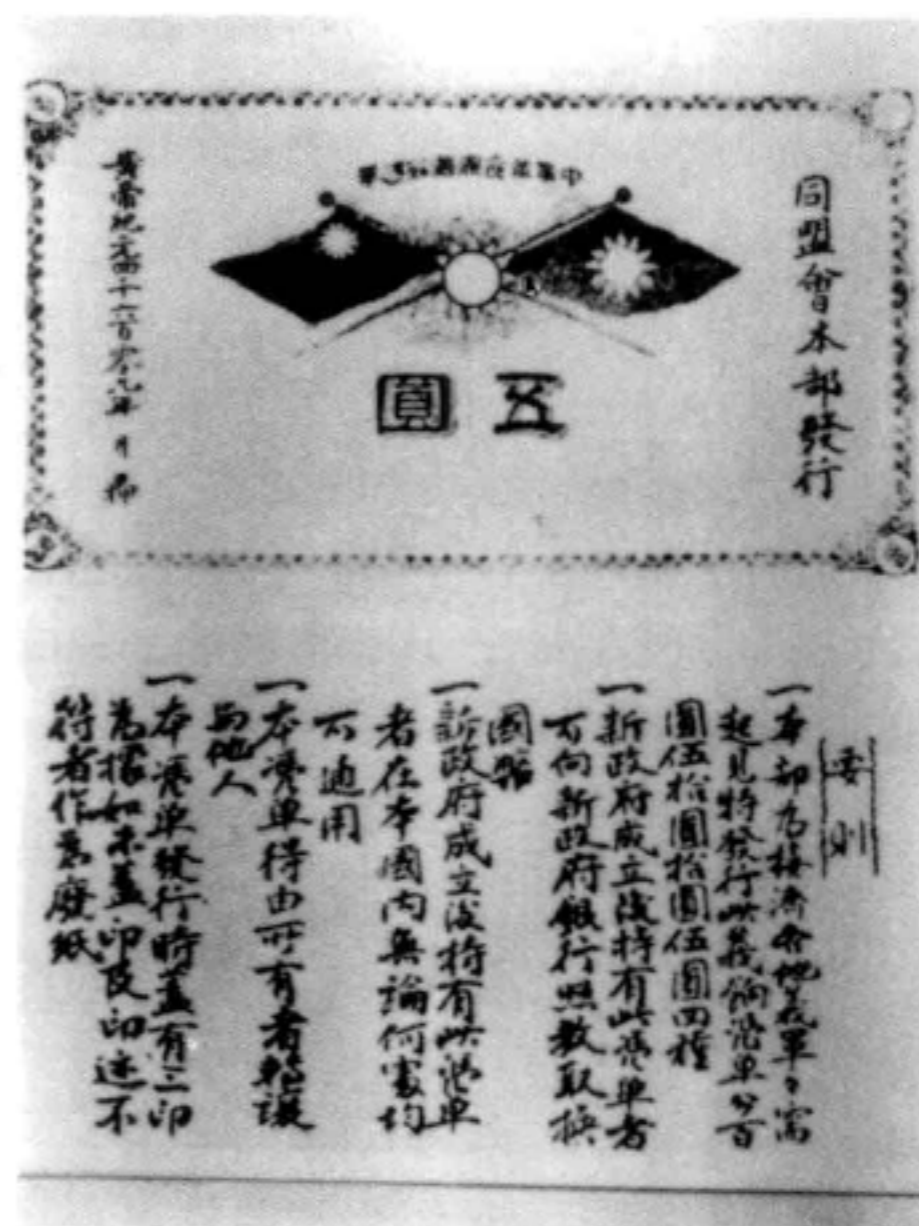 同盟會本部發行
中華革命軍義餉憑單
五圓
黃帝紀元四千六百零九年 月 日
要則
一本部為接濟各地義軍軍需
起見特發行此義餉憑單分百
圓伍拾圓拾圓伍圓四種
一新政府成立後持有此憑單者
可向新政府銀行照數取換
國幣
一新政府成立後持有此憑單
者在本國內無論何處均
可通用
一本憑單得由所有者轉讓
與他人
一本憑單發行時蓋有三印
為據如未蓋印及印迹不
符者作為廢紙